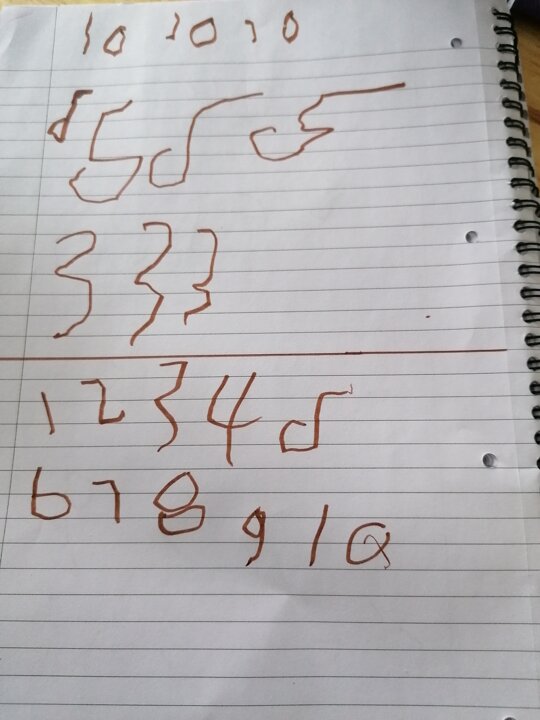 10 10 10
5 5 5 5
3 3 3
1 2 3 4 5
6 7 8 9 10